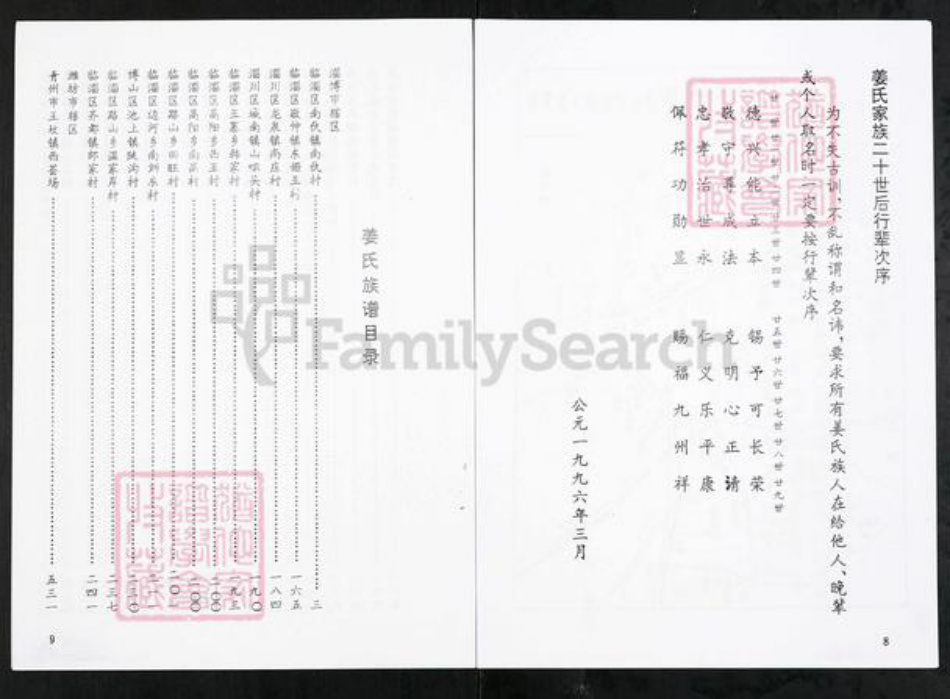 姜氏家族二十世后行辈次序
为不失古训，不乱称谓和名讳，要求所有姜氏族人在给他人、晚辈
或个人取名时一定要按行辈次序
德兴能立本 锡予可长荣
敬守尊成法 克明心正请
忠孝治世永 仁义乐平康
佩符功勋显 赐福九州祥
公元一九九六年三月
8
姜氏族谱目录
淄博市辖区
临淄区南仇镇南仇村 三
临淄区敬仲镇东姬王村 一六五
淄川区龙泉镇尚庄村 一八四
淄川区城南镇山头村 一九〇
临淄区王寨乡韩家村 一九三
临淄区高阳乡西王村 二〇〇
临淄区高阳乡南高村 二〇〇
临淄区路山乡田旺村 二〇
临淄区边河乡南刘东村 二一
博山区池上镇陡沟村 二三〇
临淄区路山乡温家岸村 二三七
临淄区齐都镇郎家村 二四一
潍坊市辖区
青州市王坟镇西荟场 五三一
9
FamilySearch